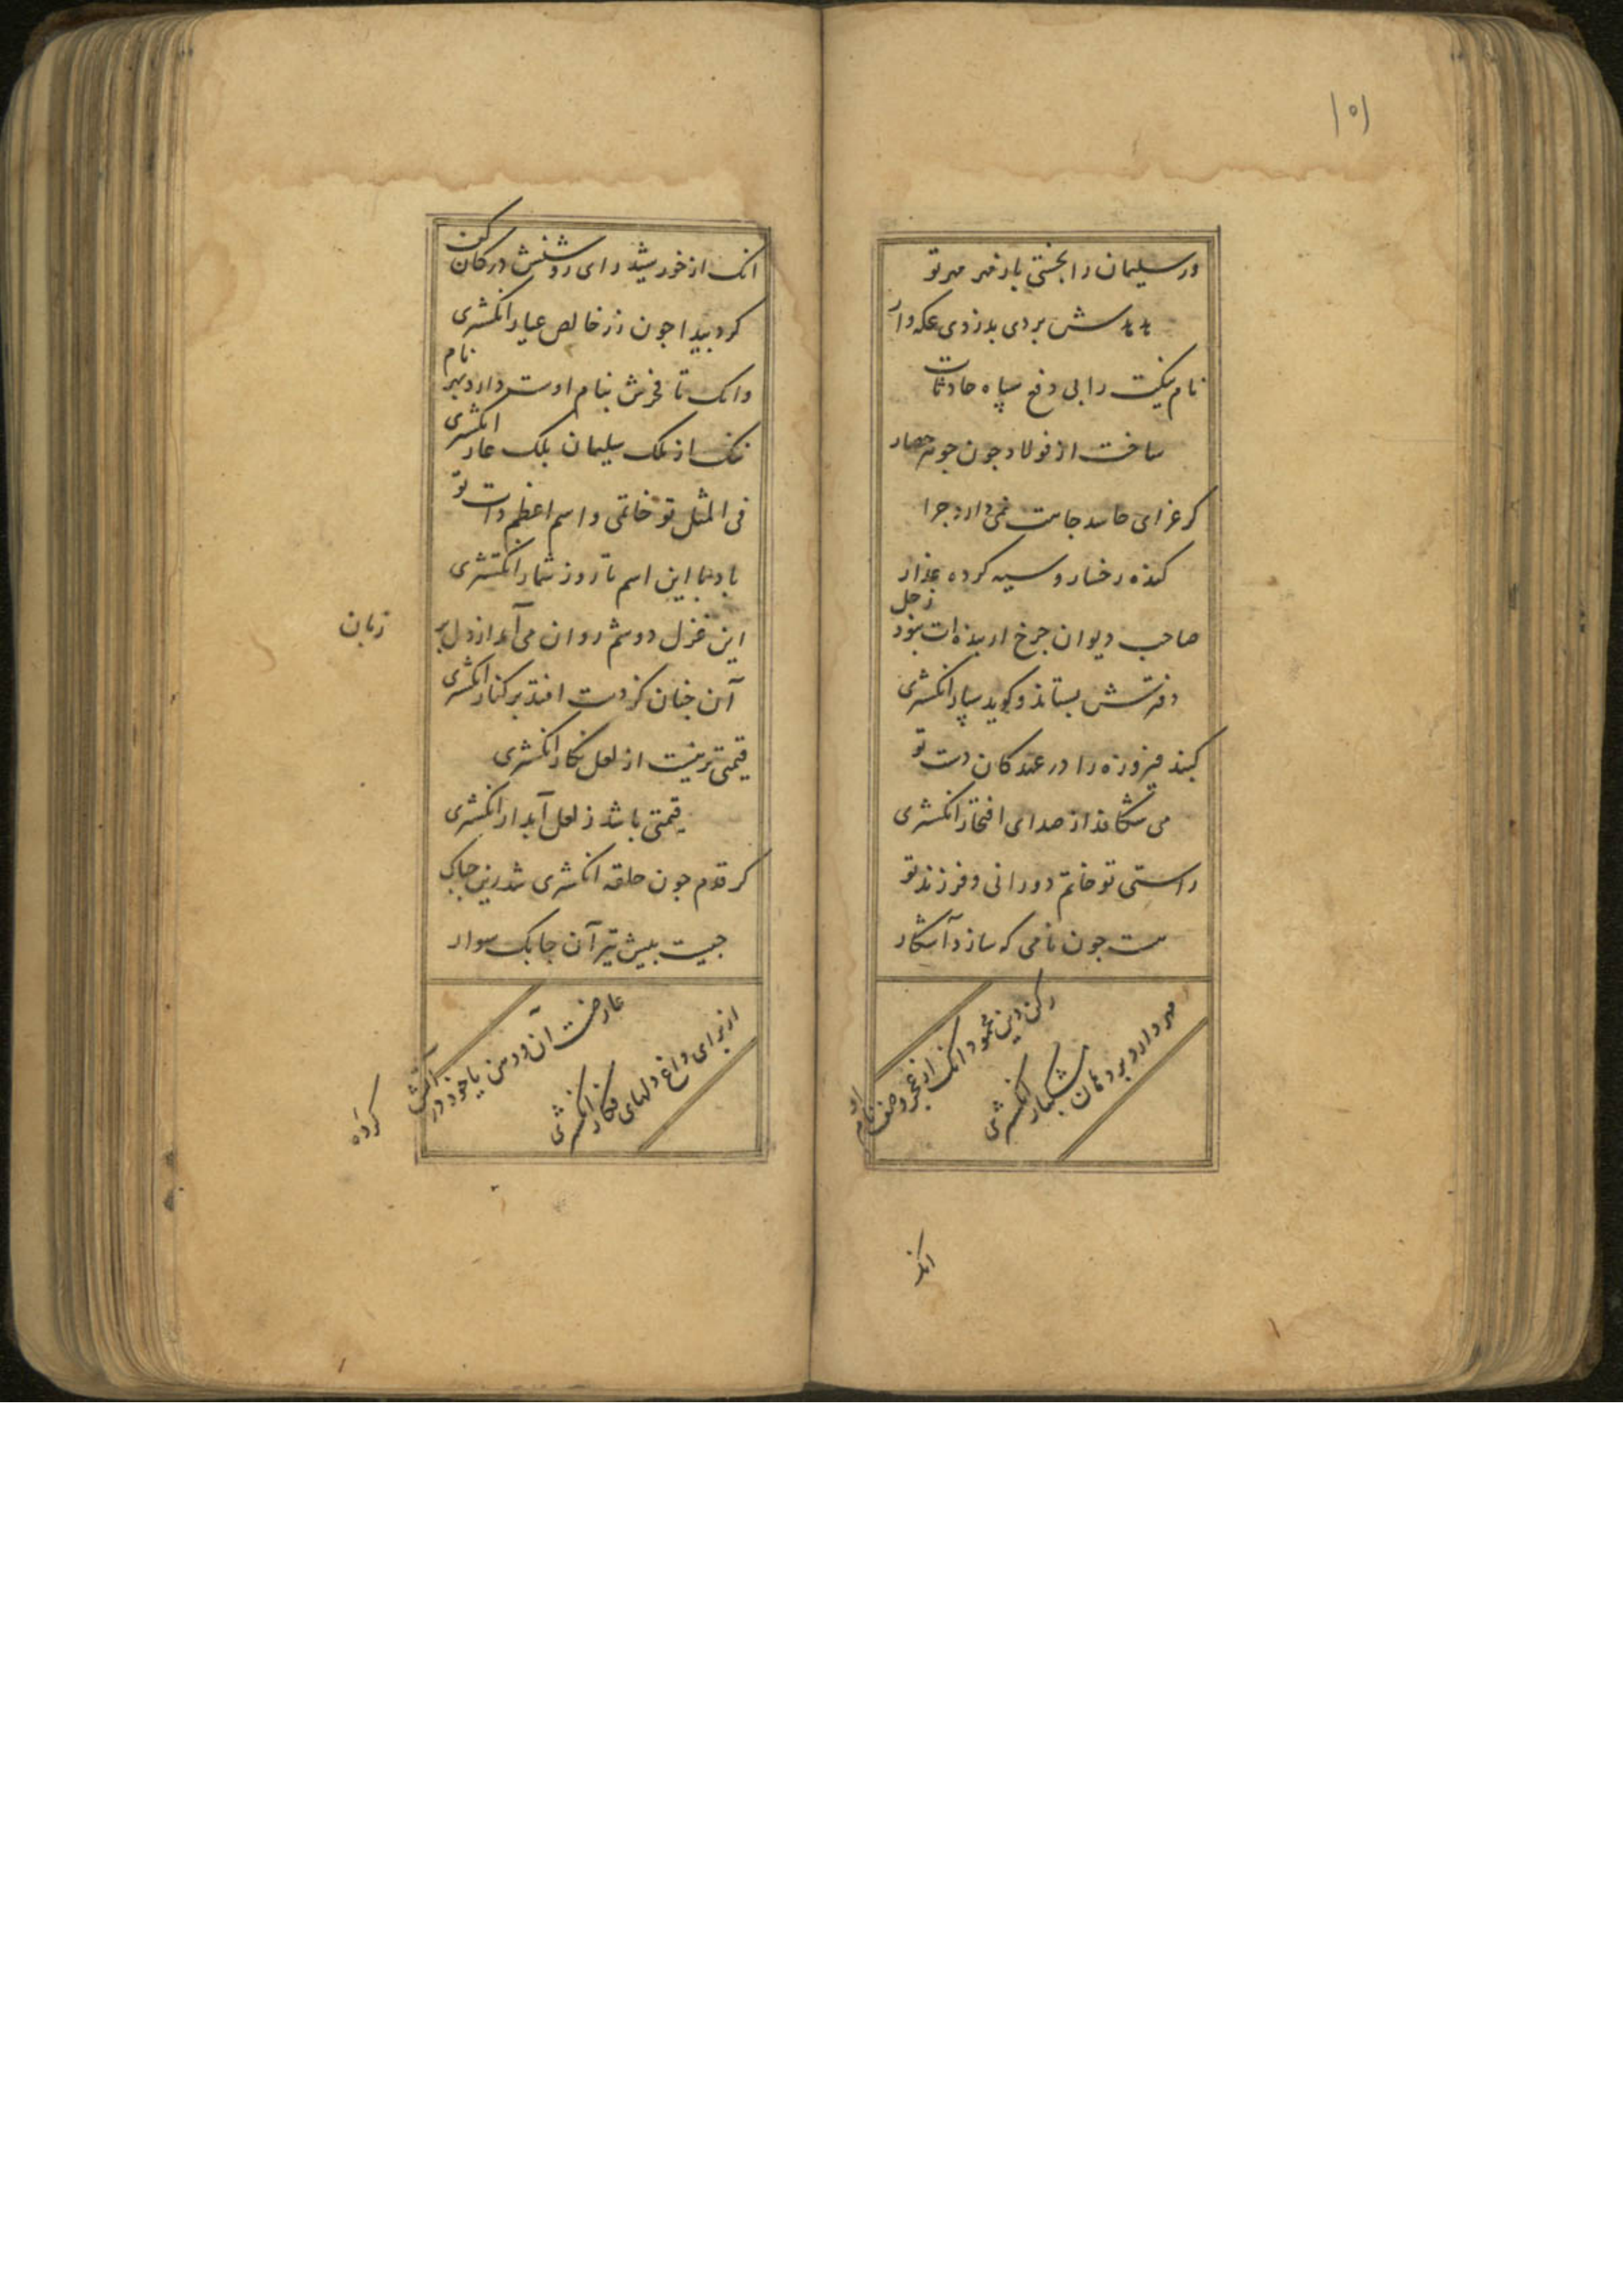 ۱۵۱
ور سلیمان را بجستی یار مهر مهر تو
هدهدش بردی بدزدی عکه وار
نام نیکت را بی دفع سپاه حادثات
ساخت از فولاد جون جوهر حصار
کر عزای حاسد جاهت نمی دارد جرا
کنده رخسار و سیه کرده عذار
صاحب دیوان جرخ ار بنده ات نبود زحل
دفترش بستاند و کوید سپار انکشتری
کنبد فیروزه را در عهد کان دست تو
می شکافد از صدای افتخار انکشتری
راستی تو خاتم دورانی و فرزند تو
هست جون نامی که سازد آشکار
رکن دین محمود انک از فخر وصف نام او
مهر دارد بر دهان مشکبار انکشتری
انک
انک از خورشید رای روشنش در کان کن
کرد پیدا جون زر خالص عیار انکشتری
وانک تا فخرش بنام اوست دارد بهر نام
ننک از ملک سلیمان بلک عار انکشتری
فی المثل تو خاتمی و اسم اعظم ذات تو
باد با این اسم تا روز شمار انکشتری
این غزل دوشم روان می آمد از دل بر
زبان
آن جنان کز دست افتد بر کنار انکشتری
قیمتی تر نیست از لعل نکار انکشتری
قیمتی باشد ز لعل آبدار انکشتری
کر قدم جون حلقه انکشتری شد زین جابک
جیست پیش تیر آن جابک سوار
عارضست آن دوست یا خود در آتش
کرده
از برای داغ دلهای فکار انکشتری